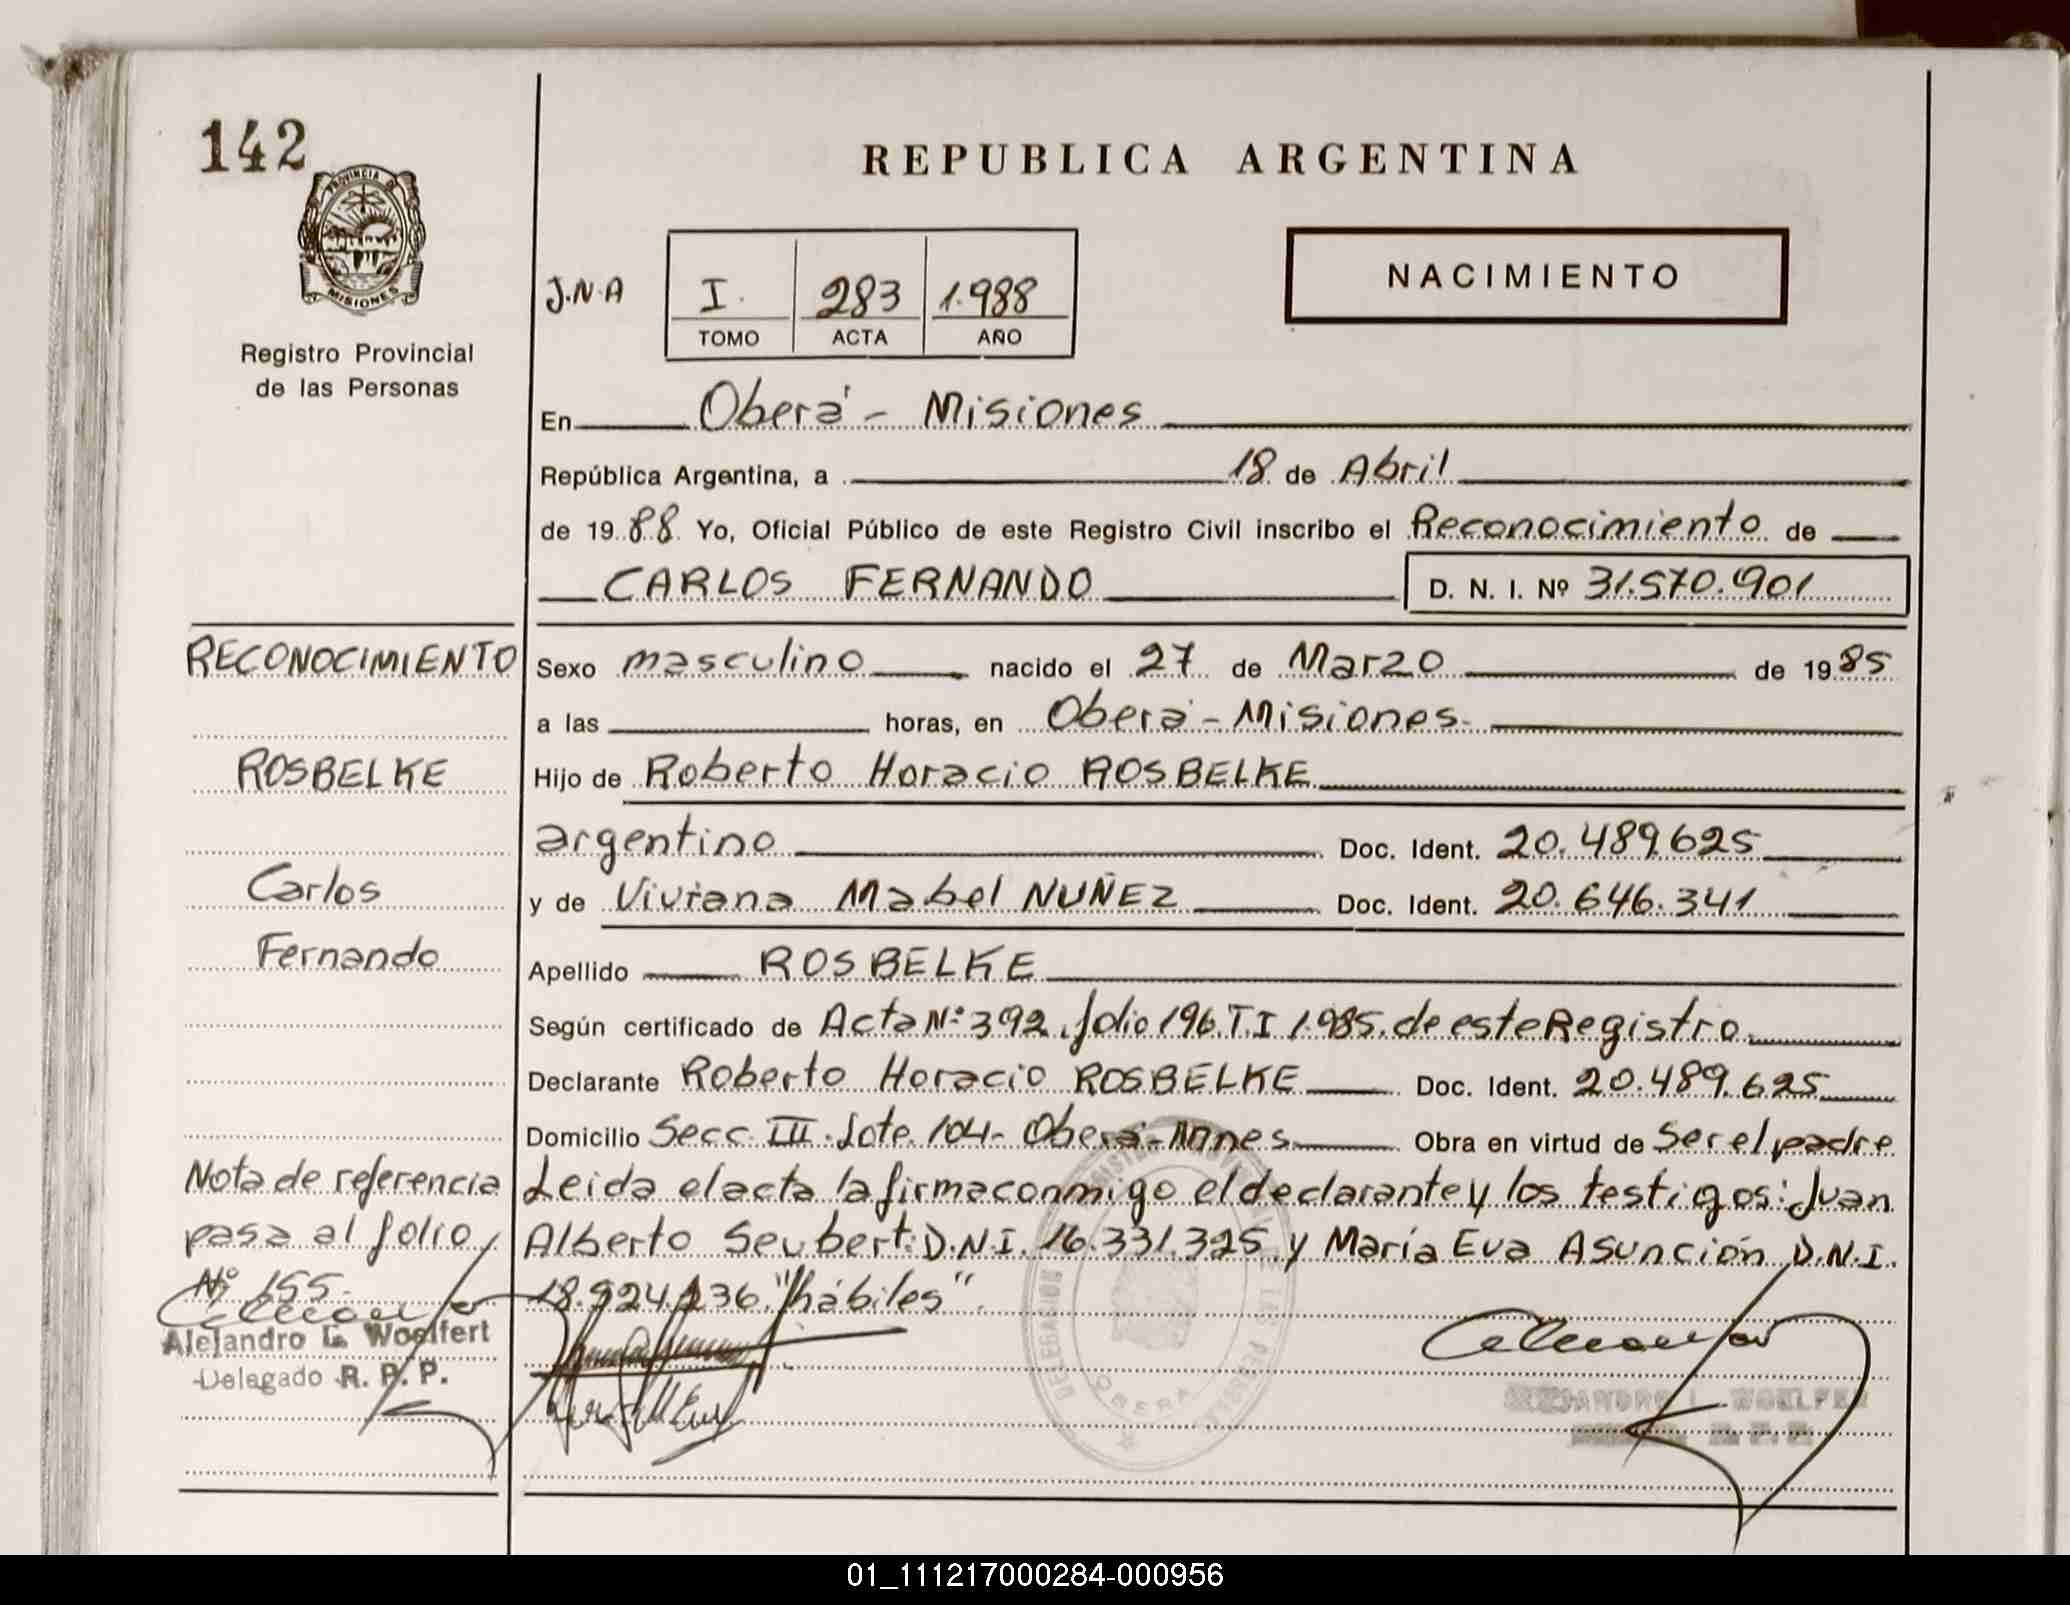 142
PROVINCIA D
MISIONES
Registro Provincial
de las Personas
REPUBLICA ARGENTINA
J.N.A I. 283 1.988
TOMO ACTA AÑO
NACIMIENTO
En Oberá - Misiones
República Argentina, a 18 de Abril
de 19 88 Yo, Oficial Público de este Registro Civil inscribo el Reconocimiento de
CARLOS FERNANDO D. N. I. Nº 31.570.901
RECONOCIMIENTO
ROSBELKE
Carlos
Fernando
Sexo masculino nacido el 27 de Marzo de 19 85
a las horas, en Oberá - Misiones.
Hijo de Roberto Horacio ROSBELKE
argentino Doc. Ident. 20.489.625
y de Viviana Mabel NUÑEZ Doc. Ident. 20.646.341
Apellido ROSBELKE
Según certificado de Acta Nº 392. folio 196. T. I 1.985. de este Registro
Declarante Roberto Horacio ROSBELKE Doc. Ident. 20.489.625
Domicilio Secc. III. Lote 104 - Oberá - Mnes Obra en virtud de Ser el padre
Leida el acta la firma conmigo el declarante y los testigos: Juan
Alberto Seubert: D.N.I. 16.331.325 y María Eva Asunción D.N.I.
"hábiles".
Nota de referencia
pasa al folio
Nº 155.
Alejandro L. Woelfert
Delegado R. P. P.
DELEGACION
OBERA
01_111217000284-000956